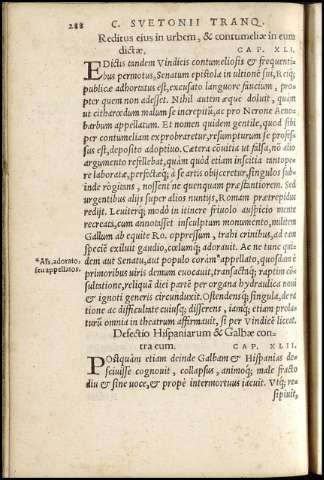 288 C. SVETONII TRANQ.
Reditus eius in urbem, & contumeliæ in eum
dictæ. CAP. XLI.
EDictis tandem Vindicis contumeliosis & frequenti-
bus permotus, Senatum epistola in ultionē sui, Reiq;
publicæ adhortatus est, excusato languore faucium, pro-
pter quem non adesset. Nihil autem æque doluit, quàm
ut citharœdum malum se increpitū, ac pro Nerone Aeno-
barbum appellatum. Et nomen quidem gentile, quod sibi
per contumeliam exprobraretur, resumpturum se profes-
sus est, deposito adoptiuo. Cætera cōuitia ut falsa, nō alio
argumento refellebat, quàm quòd etiam inscitia tantope-
re laboratæ, perfectæq; à se artis obijceretur, singulos sub-
inde rogitans, nossent ne quenquam præstantiorem. Sed
urgentibus alijs super alios nuntijs, Romam præ trepidus
redijt. Leuiterq; modò in itinere friuolo auspicio mente
recreata, cum annotasset insculptum monumento, militem
Gallum ab equite Ro. oppressum, trahi crinibus, ad eam
speciē exiluit gaudio, cœlumq; adorauit. Ac ne tunc qui-
*Als, adorato, dem aut Senatu, aut populo coram *appellato, quosdam è
seu appellatos. primoribus uiris domum euocauit, transactaq; raptim cō-
sultatione, reliquā diei partē per organa hydraulica noui
& ignoti generis circunduxit. Ostendensq; singula, de ra
tione ac difficultate cuiusq; disserens, iamq; etiam prola-
turū omnia in theatrum affirmauit, si per Vindicē liceat.
Defectio Hispaniarum & Galbæ con-
tra eum. CAP. XLII.
POstquàm etiam deinde Galbam & Hispanias de-
sciuisse cognouit, collapsus, animoq; male fracto
diu & sine uoce, & propè intermortuus iacuit. Vtq; re-
sipuit,